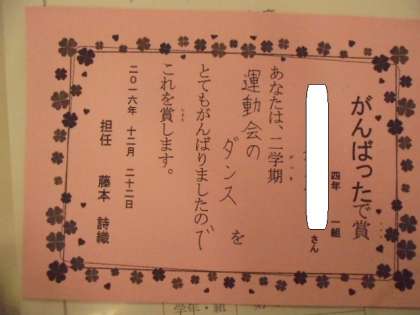 がんばったで賞
四年 一組
さん
あなたは、二学期
運動会の
ダンス を
とてもがんばりましたので
これを賞します。
二〇一六年 十二月 二十二日
担任 藤本 詩織
学年・組